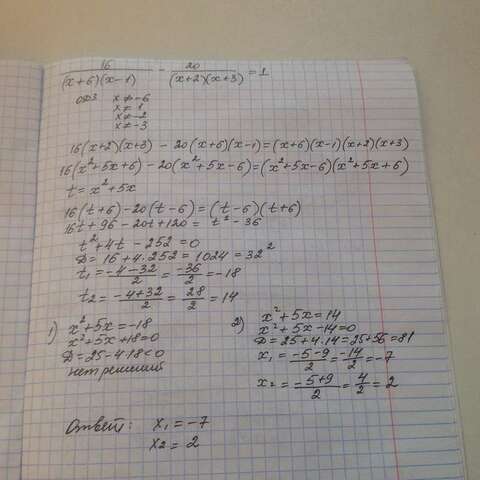 16/((x+6)(x-1)) - 20/((x+2)(x+3)) = 1
ОДЗ x≠-6
x≠1
x≠-2
x≠-3
16(x+2)(x+3) - 20(x+6)(x-1)=(x+6)(x-1)(x+2)(x+3)
16(x²+5x+6)-20(x²+5x-6)=(x²+5x-6)(x²+5x+6)
t=x²+5x
16(t+6)-20(t-6)=(t-6)(t+6)
16t+96-20t+120= t²-36
t²+4t-252=0
D=16+4·252=1024=32²
t₁=(-4-32)/2=-36/2=-18
t₂=(-4+32)/2=28/2=14
1) x²+5x=-18
x²+5x+18=0
D=25-4·18<0
нет решений
2) x²+5x=14
x²+5x-14=0
D=25+4·14=25+56=81
x₁=(-5-9)/2=-14/2=-7
x₂=(-5+9)/2=4/2=2
Ответ: x₁=-7
x₂=2